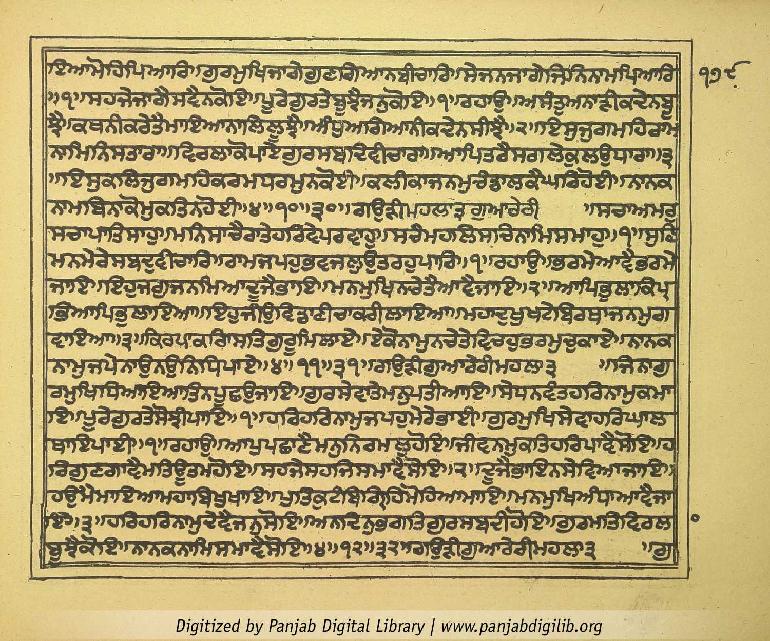 ੧੭੯
ਇਆਮੋਹਿਪਿਆਰਿ॥ਗੁਰਮੁਖਿਜਾਗੈਗੁਣਗਿਆਨਬੀਚਾਰਿ॥ਸੇਜਨਜਾਗੇਜਿਨਨਾਮਪਿਆਰਿ
॥੧॥ਸਹਜੇਜਾਗੈਸਵੈਨਕੋਇ॥ਪੂਰੇਗੁਰਤੇਬੂਝੈਜਨੁਕੋਇ॥੧॥ਰਹਾਉ॥ਅਸੰਤੁਅਨਾੜੀਕਦੇਨਬੂ
ਝੈ॥ਕਥਨੀਕਰੇਤੈਮਾਇਆਨਾਲਿਲੂਝੈ॥ਅੰਧੁਅਗਿਆਨੀਕਦੇਨਸੀਝੈ॥੨॥ਇਸੁਜੁਗਮਹਿਰਾਮ
ਨਾਮਿਨਿਸਤਾਰਾ॥ਵਿਰਲਾਕੋਪਾਏਗੁਰਸਬਦਿਵੀਚਾਰਾ॥ਆਪਿਤਰੈਸਗਲੇਕੁਲਉਧਾਰਾ॥੩
॥ਇਸੁਕਲਿਜੁਗਮਹਿਕਰਮਧਰਮੁਨਕੋਈ॥ਕਲੀਕਾਜਨਮੁਚੰਡਾਲਕੈਘਰਿਹੋਈ॥ਨਾਨਕ
ਨਾਮਬਿਨਾਕੋਮੁਕਤਿਨਹੋਈ॥੪॥੧੦॥੩੦॥ਗਉੜੀਮਹਲਾ੩ਗੁਆਰੇਰੀ ॥ਸਚਾਅਮਰੁ
ਸਚਾਪਾਤਿਸਾਹੁ॥ਮਨਿਸਾਚੈਰਾਤੇਹਰਿਵੇਪਰਵਾਹੁ॥ਸਚੈਮਹਲਿਸਾਚਿਨਾਮਿਸਮਾਹੁ॥੧॥ਸੁਣਿ
ਮਨਮੇਰੇਸਬਦੁਵੀਚਾਰਿ॥ਰਾਮਜਪਹੁਭਵਜਲੁਉਤਰਹੁਪਾਰਿ॥੧॥ਰਹਾਉ॥ਭਰਮੇਆਵੈਭਰਮੇ
ਜਾਇ॥ਇਹੁਜਗੁਜਨਮਿਆਦੂਜੈਭਾਇ॥ਮਨਮੁਖਿਨਚੇਤੈਆਵੈਜਾਇ॥੨॥ਆਪਿਭੁਲਾਕੈਪ੍ਰ
ਭਿਆਪਿਭੁਲਾਇਆ॥ਇਹੁਜੀਉਵਿਡਾਣੀਚਾਕਰੀਲਾਇਆ॥ਮਹਾਦੁਖੁਖਟੇਬਿਰਥਾਜਨਮੁਗ
ਵਾਇਆ॥੩॥ਕਿਰਪਾਕਰਿਸਤਿਗੁਰੂਮਿਲਾਏ॥ਏਕੋਨਾਮੁਚੇਤੇਵਿਚਹੁਭਰਮੁਚੁਕਾਏ॥ਨਾਨਕ
ਨਾਮੁਜਪੇਨਾਉਨਉਨਿਧਿਪਾਏ॥੪॥੧੧॥੩੧॥ਗਉੜੀਗੁਆਰੇਰੀਮਹਲਾ੩ ॥ਜਿਨਾਗੁ
ਰਮੁਖਿਧਿਆਇਆਤਿਨਪੂਛਉਜਾਇ॥ਗੁਰਸੇਵਾਤੇਮਨੁਪਤੀਆਇ॥ਸੇਧਨਵੰਤਹਰਿਨਾਮੁਕਮਾ
ਇ॥ਪੂਰੇਗੁਰਤੇਸੋਝੀਪਾਇ॥੧॥ਹਰਿਹਰਿਨਾਮੁਜਪਹੁਮੇਰੇਭਾਈ॥ਗੁਰਮੁਖਿਸੇਵਾਹਰਿਘਾਲ
ਥਾਇਪਾਈ॥੧॥ਰਹਾਉ॥ਆਪੁਪਛਾਣੈਮਨੁਨਿਰਮਲੁਹੋਇ॥ਜੀਵਨਮੁਕਤਿਹਰਿਪਾਵੈਸੋਇ॥ਹ
ਰਿਗੁਣਗਾਵੈਮਤਿਊਤਮਹੋਇ॥ਸਹਜੇਸਹਜਿਸਮਾਵੈਸੋਇ॥੨॥ਦੂਜੈਭਾਇਨਸੇਵਿਆਜਾਇ॥
ਹਉਮੈਮਾਇਆਮਹਾਬਿਖੁਖਾਇ॥ਪੁਤਿਕੁਟੰਬਿਗ੍ਰਿਹਿਮੋਹਿਆਮਾਇ॥ਮਨਮੁਖਿਅੰਧਾਆਵੈਜਾ
ਇ॥੩॥ਹਰਿਹਰਿਨਾਮੁਦੇਵੈਜਨੁਸੋਇ॥ਅਨਦਿਨੁਭਗਤਿਗੁਰਸਬਦੀਹੋਇ॥ਗੁਰਮਤਿਵਿਰਲਾ
ਬੂਝੈਕੋਇ॥ਨਾਨਕਨਾਮਿਸਮਾਵੈਸੋਇ॥੪॥੧੨॥੩੨॥ਗਉੜੀਗੁਆਰੇਰੀਮਹਲਾ੩ ॥ਗੁ
Digitized by Panjab Digital Library | www.panjabdigilib.org